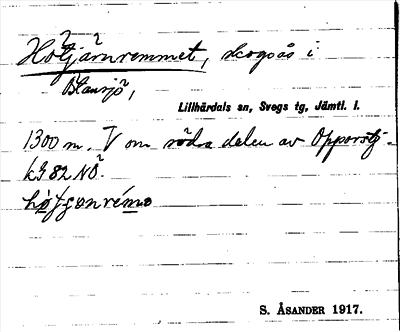 Holtjärnremmet, skogsås i
Blansjö,
Lillhärdals sn, Svegs tg, Jämtl. l.
1300 m. V om södra delen av Opporstj-
kg 82 NÖ.
S. ÅSANDER 1917.